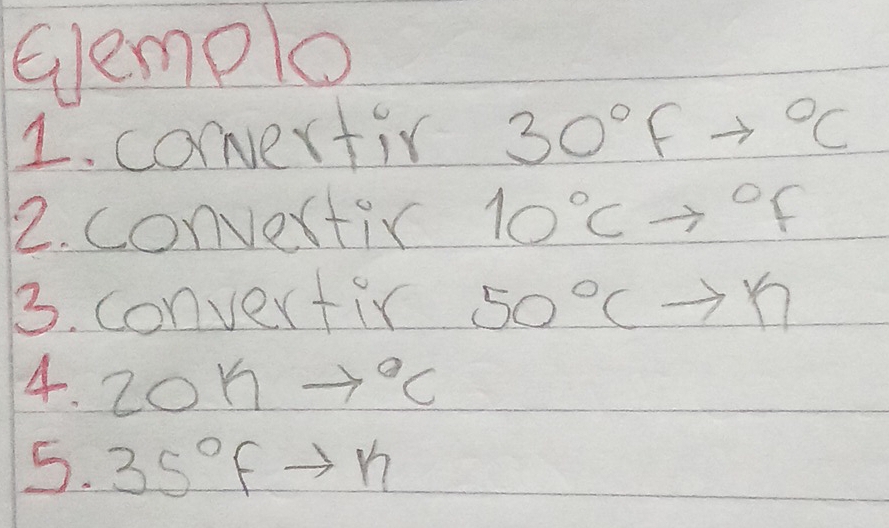 Ejemplo
1. convertir 30°F → °C
2. convertir 10°C → °F
3. convertir 50°C → K
4. 20K → °C
5. 35°F → K